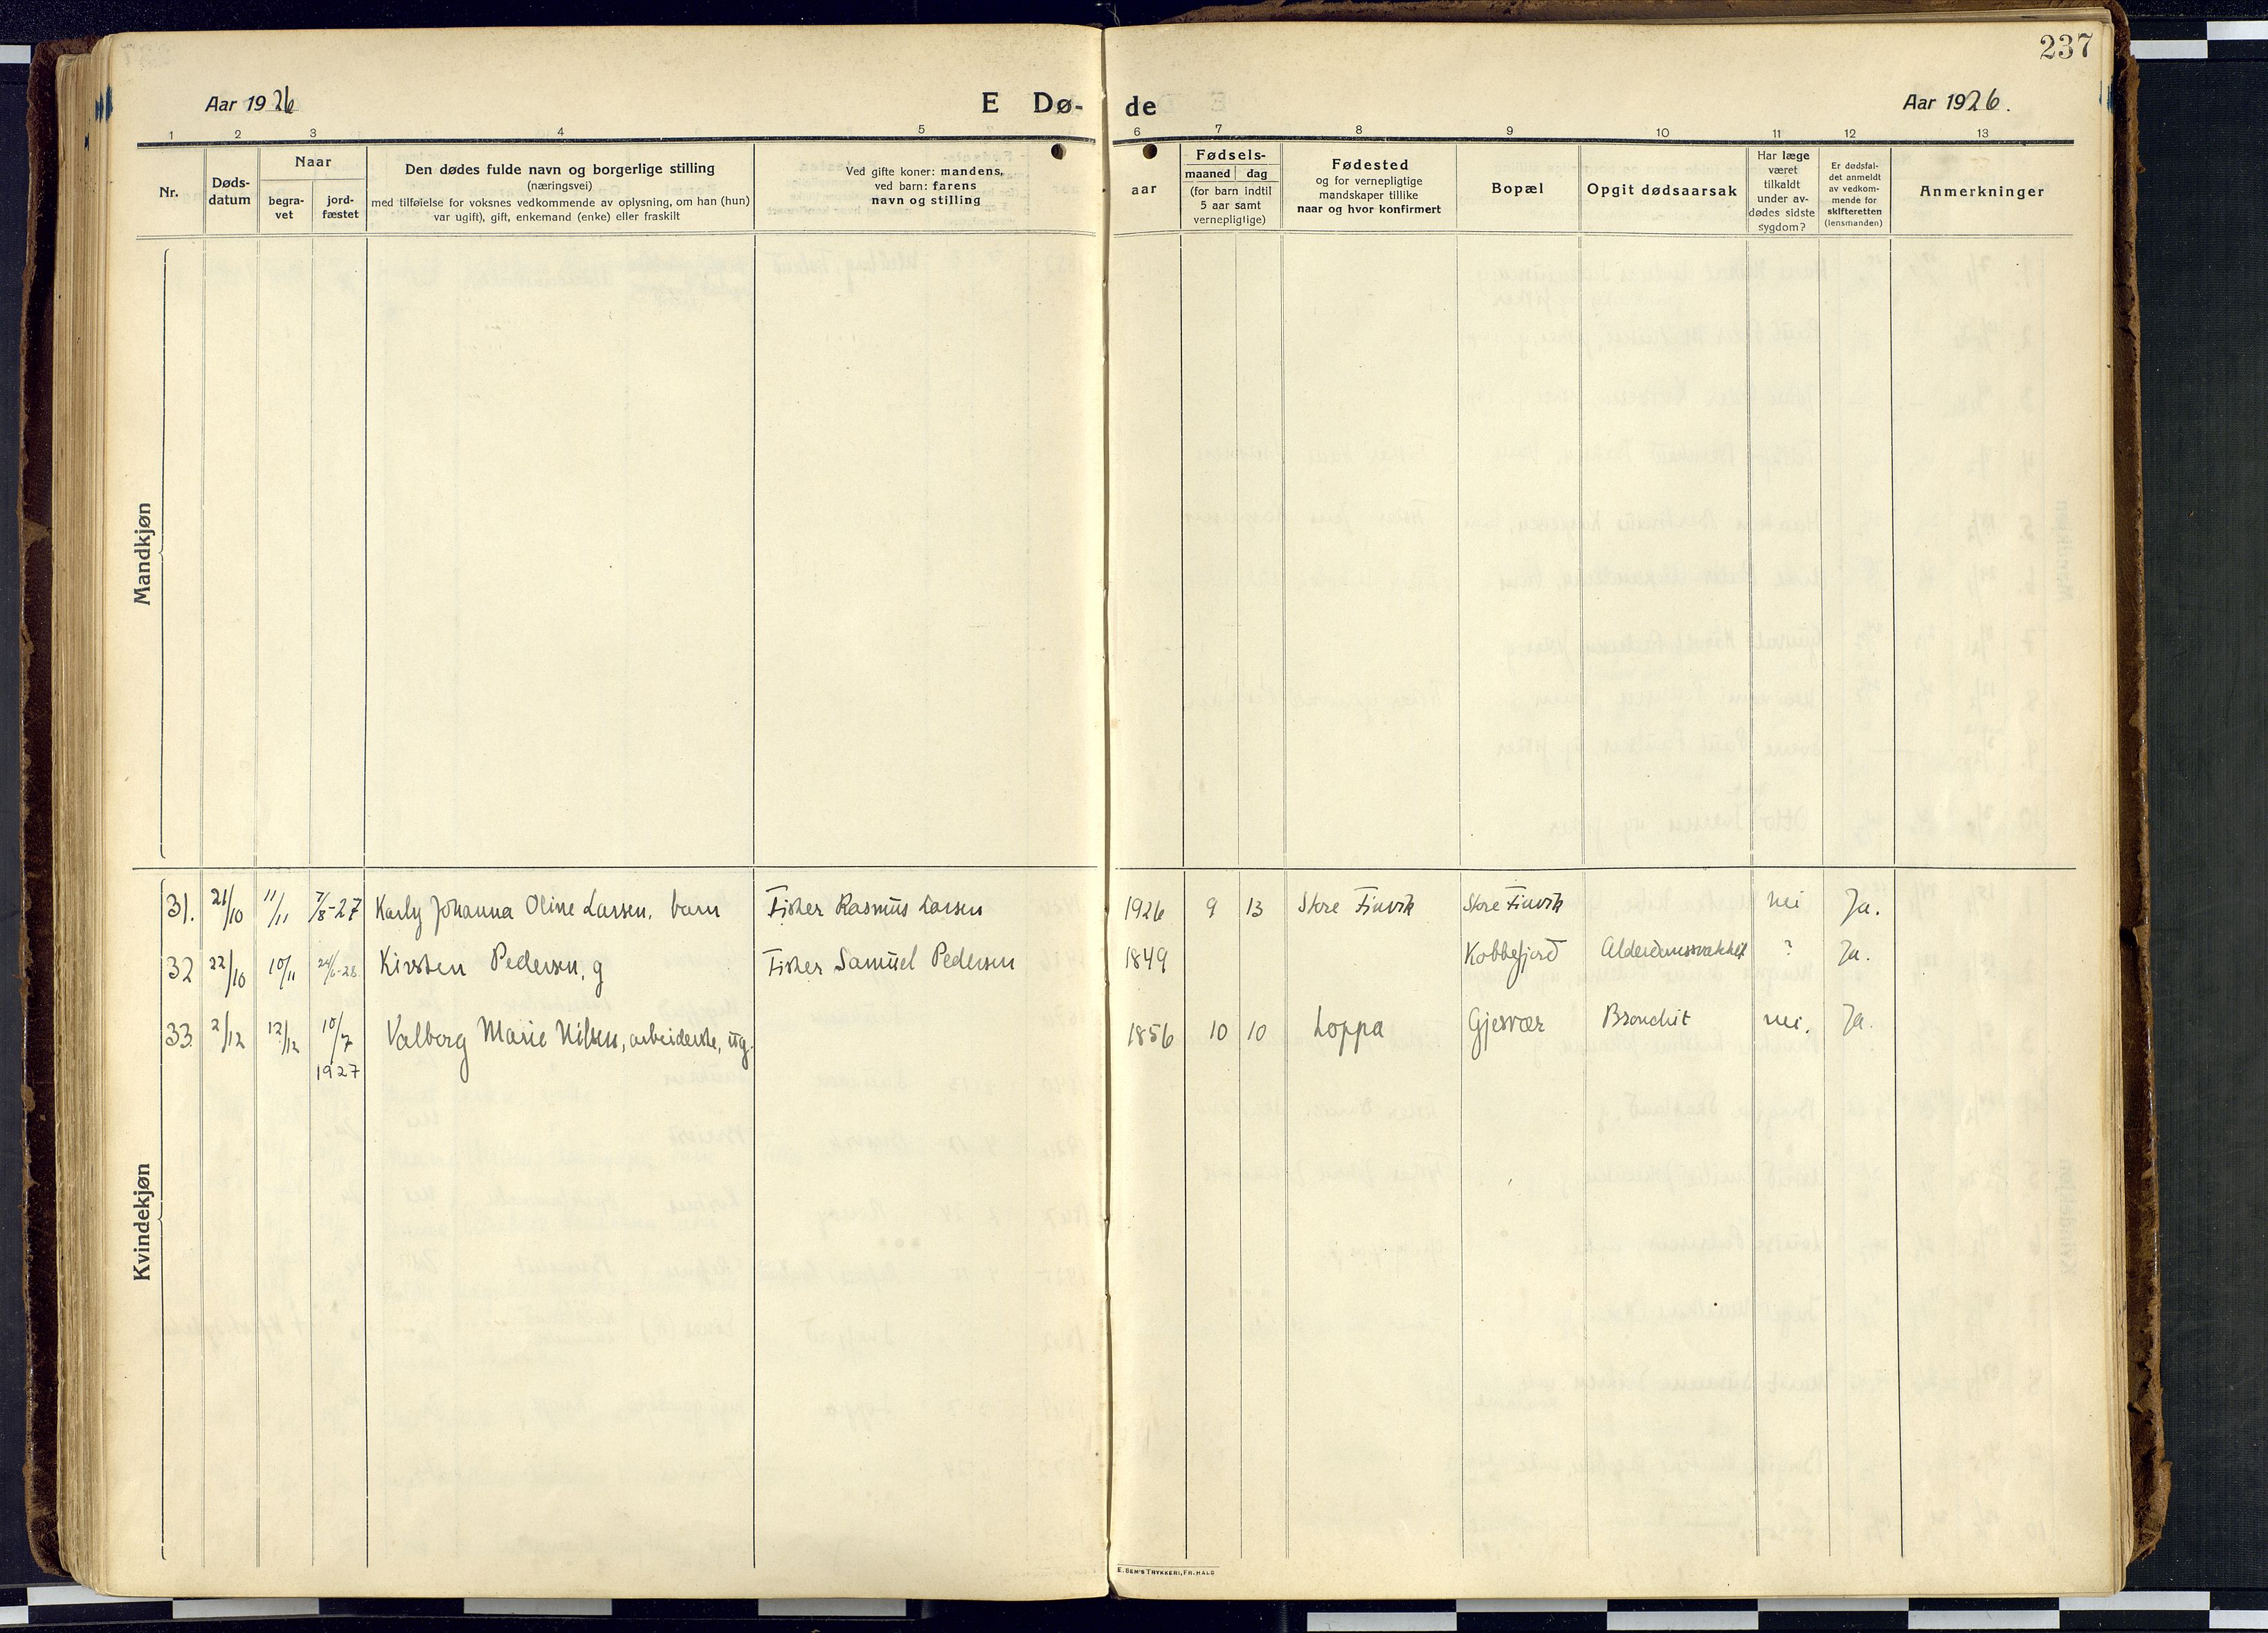 237
Aar 1926
E Dø-
de
Aar 1926.
1 2 3 4 5 6 7 8 9 10 11 12 13
Nr.
Døds-
datum
Naar
begra-
vet
jord-
fæstet
Den dødes fulde navn og borgerlige stilling
(næringsvei)
med tilføielse for voksnes vedkommende av oplysning, om han (hun)
var ugift), gift, enkemand (enke) eller fraskilt
Ved gifte koner: mandens,
ved barn: farens
navn og stilling
aar
Fødsels-
maaned dag
(for barn indtil
5 aar samt
vernepligtige)
Fødested
og for vernepligtige
mandskaper tillike
naar og hvor konfirmert
Bopæl
Opgit dødsaarsak
Har læge
været
tilkaldt
under av-
dødes sidste
sygdom?
Er dødsfal-
det anmeldt
av vedkom-
mende for
skifteretten
(lensmanden)
Anmerkninger
Mandkjøn
Kvindekjøn
31. 21/10 11/11 7/8-27 Karly Johanna Oline Larsen, barn Fisker Rasmus Larsen 1926 9 13 Store Finvik Store Finvik nei Ja.
32 22/10 10/11 24/6-28 Kirsten Pedersen, g Fisker Samuel Pedersen 1849 Kobbefjord Alderdomssvakhet ? Ja.
33 2/12 12/12 10/7 Valborg Marie Nilsen, arbeiderske, ug. 1856 10 10 Loppa Gjesvær Bronchit nei. Ja.
1927
E. SEM'S TRYKKERI, FR. HALD